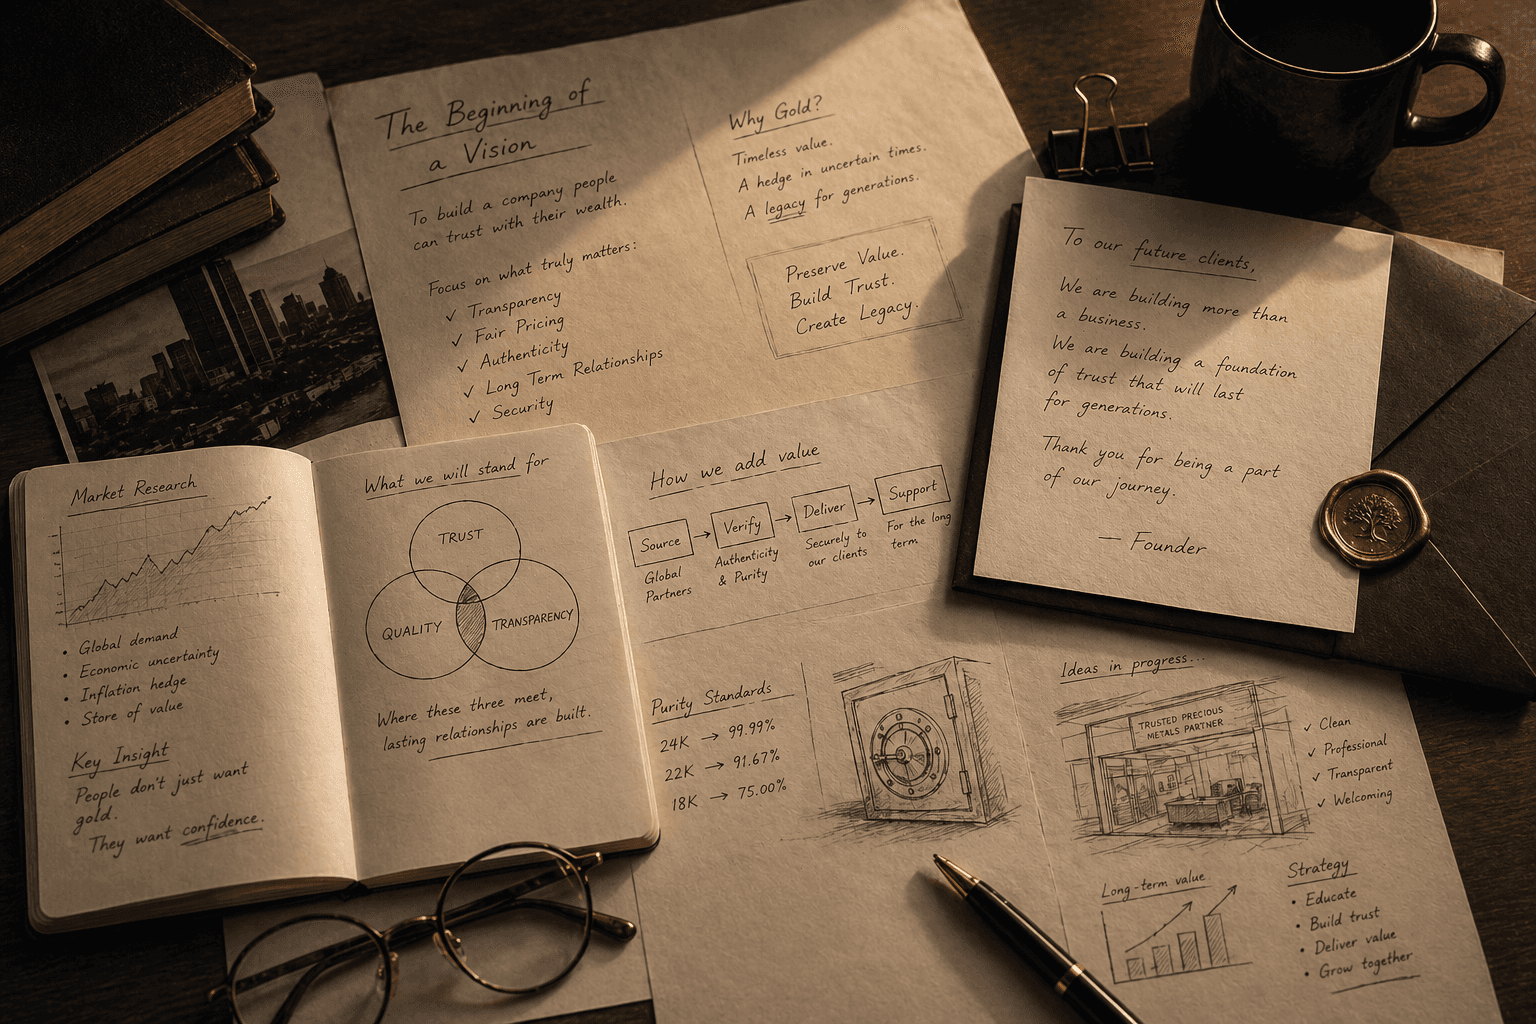 The Beginning of
a Vision
To build a company people
can trust with their wealth.
Focus on what truly matters:
✓ Transparency
✓ Fair Pricing
✓ Authenticity
✓ Long Term Relationships
✓ Security
Why Gold?
Timeless value.
A hedge in uncertain times.
A legacy for generations.
Preserve Value.
Build Trust.
Create Legacy.
To our future clients,
We are building more than
a business.
We are building a foundation
of trust that will last
for generations.
Thank you for being a part
of our journey.
— Founder
Market Research
• Global demand
• Economic uncertainty
• Inflation hedge
• Store of value
Key Insight
People don't just want
gold.
They want confidence.
What we will stand for
TRUST
QUALITY
TRANSPARENCY
Where these three meet,
lasting relationships are built.
How we add value
Source → Verify → Deliver → Support
Global
Partners
Authenticity
& Purity
Securely to
our clients
For the long
term.
Purity Standards
24K → 99.99%
22K → 91.67%
18K → 75.00%
Ideas in progress...
TRUSTED PRECIOUS
METALS PARTNER
✓ Clean
✓ Professional
✓ Transparent
✓ Welcoming
Long-term value
Strategy
• Educate
• Build trust
• Deliver value
• Grow together